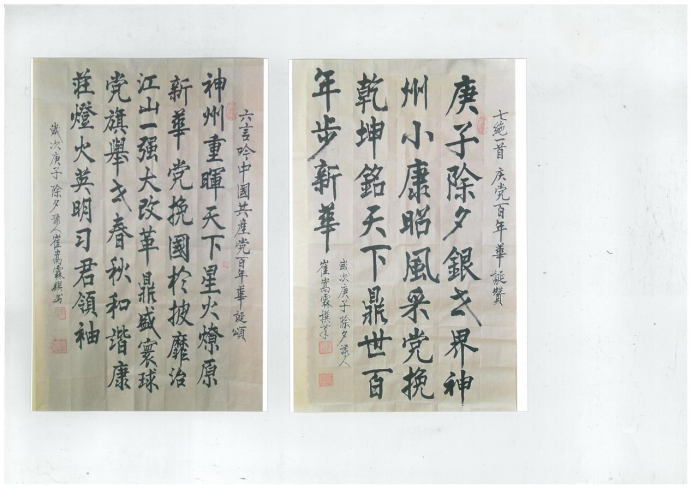 六言吟中國共產党百年華誕頌
神州重暉天下星火燎原
新華党挽國於披靡治
江山一强大改革鼎盛寰球
党旗舉世春秋和諧康
莊燈火英明习君領袖
歲次庚子除夕人崔嵩霖撰书
七绝一首 庆党百年華誕贊
庚子除夕銀世界神
州小康昭風采党挽
乾坤銘天下鼎世百
年步新華
歲次庚子除夕人
崔嵩霖撰